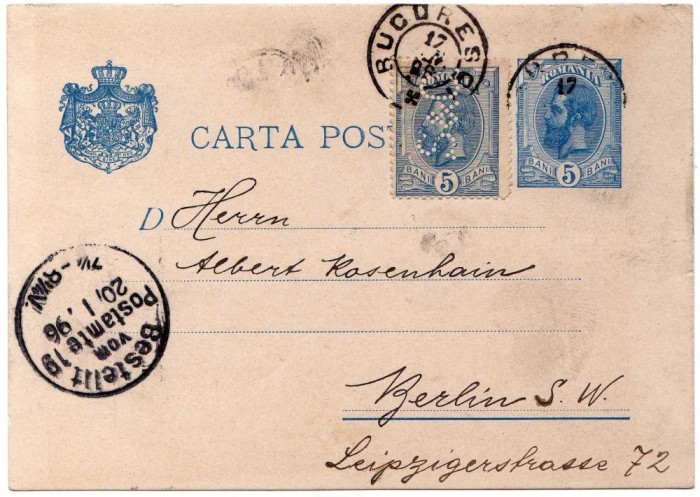 BUCURESCI
17
ROMANIA
17
CARTA POS
BANI 5 BANI
BANI 5 BANI
D Herrn
Albert Rosenhain
Bestellt
vom
Postamte 19
20/1.96
7¼-
Berlin S. W.
Leipzigerstrasse 72